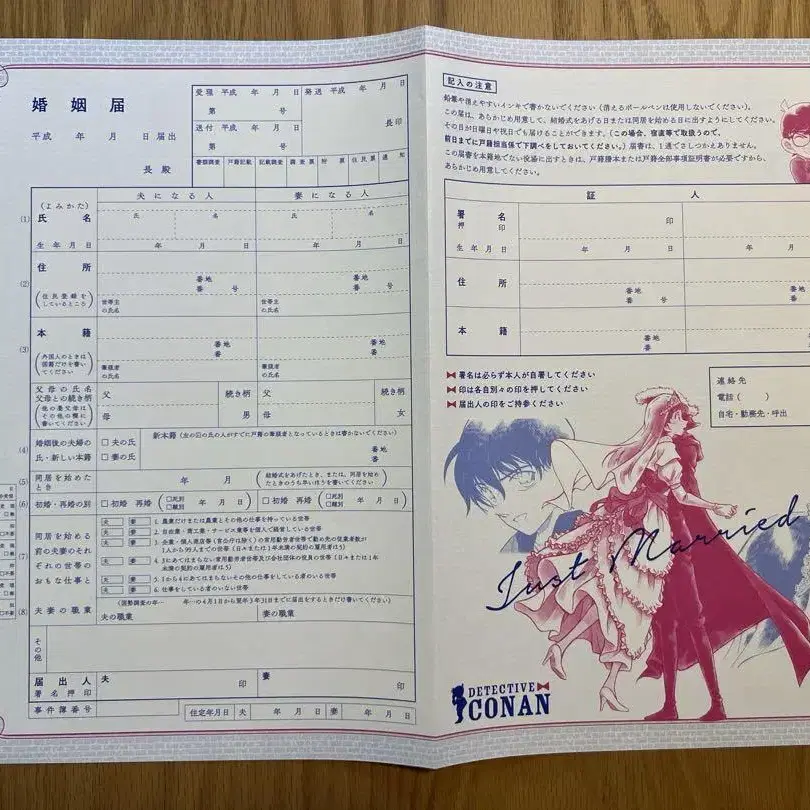 婚姻届
平成 年 月 日 届出
長 殿
受理 平成 年 月 日
第 号
送付 平成 年 月 日
第 号
発送 平成 年 月 日
長印
書類調査 戸籍記載 記載調査 調査票 附票 住民票 通知
夫になる人 妻になる人
(1)
(よみかた)
氏名
氏 名 氏 名
生年月日 年 月 日 年 月 日
(2)
住所
(住民登録をしているところ)
番地
番 号
世帯主の氏名
番地
番 号
世帯主の氏名
(3)
本籍
(外国人のときは国籍だけを書いてください)
番地
番
筆頭者の氏名
番地
番
筆頭者の氏名
父母の氏名
父母との続き柄
(他の養父母はその他の欄に書いてください)
父 続き柄 父 続き柄
母 男 母 女
(4)
婚姻後の夫婦の氏・新しい本籍
□夫の氏
□妻の氏
新本籍(左の☑の氏の人がすでに戸籍の筆頭者となっているときは書かないでください)
番地
番
(5)
同居を始めたとき
年 月
(結婚式をあげたとき、または、同居を始めたときのうち早いほうを書いてください)
(6)
初婚・再婚の別
□初婚 再婚(□死別 □離別 年 月 日)
□初婚 再婚(□死別 □離別 年 月 日)
(7)
同居を始める前の夫妻のそれぞれの世帯のおもな仕事と
夫 妻 1. 農業だけまたは農業とその他の仕事を持っている世帯
夫 妻 2. 自由業・商工業・サービス業等を個人で経営している世帯
夫 妻 3. 企業・個人商店等(官公庁は除く)の常用勤労者世帯で勤め先の従業者数が
1人から99人までの世帯(日々または1年未満の契約の雇用者は5)
夫 妻 4. 3にあてはまらない常用勤労者世帯及び会社団体の役員の世帯(日々または1年
未満の契約の雇用者は5)
夫 妻 5. 1から4にあてはまらないその他の仕事をしている者のいる世帯
夫 妻 6. 仕事をしている者のいない世帯
(8)
夫妻の職業
(国勢調査の年… 年…の4月1日から翌年3月31日までに届出をするときだけ書いてください)
夫の職業 妻の職業
その他
届出人
署名押印
夫 印 妻 印
事件簿番号
住定年月日 夫 年 月 日 妻 年 月 日
記入の注意
鉛筆や消えやすいインキで書かないでください(消えるボールペンは使用しないでください)。
この届は、あらかじめ用意して、結婚式をあげる日または同居を始める日に出すようにしてください。
その日が日曜日や祝日でも届けることができます。(この場合、宿直等で取扱うので、
前日までに戸籍担当係で下調べをしておいてください。)届書は、1通でさしつかえありません。
この届書を本籍地でない役場に出すときは、戸籍謄本または戸籍全部事項証明書が必要ですから、
あらかじめ用意してください。
証人
署名
押印
印
生年月日 年 月 日 年 月
住所
番地
番 号
番地
番
本籍
番地
番
番地
番
署名は必ず本人が自署してください
印は各自別々の印を押してください
届出人の印をご持参ください
連絡先
電話( )
自宅・勤務先・呼出
Just Married
DETECTIVE
CONAN